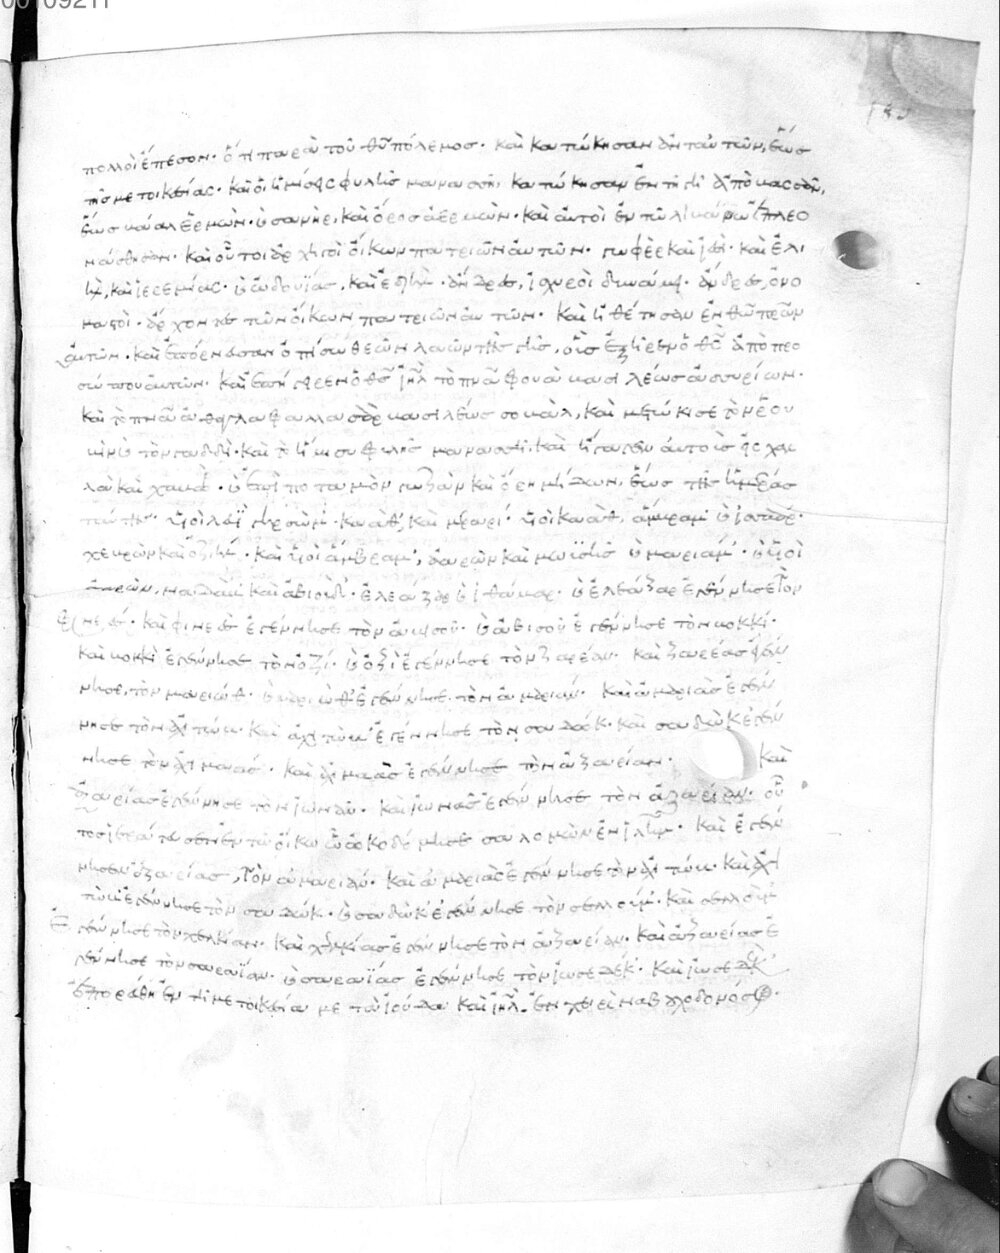 00109211
πολλοὶ ἔπεσον. ὅτι παρὰ τοῦ θῦ πόλεμος. καὶ κατώκησαν ἀντ' αὐτῶν, ἕως
τῆς μετοικεσίας. καὶ οἱ ἡμίσεις φυλῆς μανασσῆ, κατώκησαν ἐν τῇ γῇ ἀπὸ βασὰν,
ἕως βάαλ ἑρμὼν. καὶ σανὴρ, καὶ ὄρος ἀερμὼν. καὶ αὐτοὶ ἐν τῷ λιβάνῳ ἐπλεο
νάσθησαν. καὶ οὗτοι ἀρχηγοὶ οἴκων πατριῶν αὐτῶν. γωφὲρ καὶ ἰσεί. καὶ ἐλι
ὴλ, καὶ ἱερεμίας. καὶ ὠδουΐας, καὶ ἐδιὴλ. ἄνδρες, ἰσχυροὶ δυνάμει. ἄνδρες, ὀνο
μαστοὶ. ἄρχοντες τῶν οἴκων πατριῶν αὐτῶν. καὶ ἠθέτησαν ἐν θῶ πρων
αὐτῶν. καὶ ἐπόρνευσαν ὀπίσω θεῶν λαῶν τῆς γῆς, οὓς ἐξῆρεν ὁ θς ἀπὸ προ
σώπου αὐτῶν. καὶ ἐπήγειρεν ὁ θς ἰηλ τὸ πνα φουὰ βασιλέως ἀσσυρίων.
καὶ τὸ πνα θαγλαφαλλασὰρ βασιλέως ἀσσοὺρ, καὶ μετώκισε τὸν ῥου
βὶμ καὶ τὸν γαδδὶ. καὶ τὸ ἥμισυ φυλῆς μανασσῆ. καὶ ἤγαγεν αὐτοὺς εἰς χαα
λὰ καὶ χαβὼρ. καὶ ἐπὶ ποταμὸν γωζὰν καὶ ὄρη μήδων, ἕως τῆς ἡμέρας
ταύτης. υἱοὶ λευΐ γηρσὼν. καὰθ, καὶ μεραρί. υἱοὶ καὰθ, ἄμραμ καὶ ἰσσαάρ.
χευρὼν καὶ ὀζιήλ. καὶ υἱοὶ ἄμβραμ, ἀαρὼν καὶ μωϋσῆς καὶ μαριάμ. καὶ υἱοὶ
ἀαρὼν, ναδὰβ καὶ ἀβιοὺδ. ἐλεαζὰρ καὶ ἰθάμαρ. καὶ ἐλεάζαρ ἐγέννησε τὸν
φινεὲς. καὶ φινεὲς ἐγέννησε τὸν ἀβισοῦ. καὶ ἀβισοῦ ἐγέννησε τὸν βοκκί.
καὶ βοκκὶ ἐγέννησε τὸν ὀζί. καὶ ὀζὶ ἐγέννησε τὸν ζαρέαν. καὶ ζαρέας ἐγέν
νησε, τὸν μαριώθ. καὶ μαριὼθ ἐγέννησε τὸν ἀμαρίαν. καὶ ἀμαρίας ἐγέν
νησε τὸν ἀχιτώβ. καὶ ἀχιτὼβ ἐγέννησε τὸν σαδὼκ. καὶ σαδὼκ ἐγέν
νησε τὸν ἀχιμαάς. καὶ ἀχιμαὰς ἐγέννησε τὸν ἀζαρίαν. καὶ
ἀζαρίας ἐγέννησε τὸν ἰωνάν. καὶ ἰωνὰς ἐγέννησε τὸν ἀζαρίαν. οὗ
τος ἱεράτευσεν ἐν τῷ οἴκῳ ᾧ ὠκοδόμησε σαλομὼν ἐν ἰλημ. καὶ ἐγέν
νησεν ἀζαρίας, τὸν ἀμαρίαν. καὶ ἀμαρίας ἐγέννησε τὸν ἀχιτώβ. καὶ ἀχι
τὼβ ἐγέννησε τὸν σαδώκ. καὶ σαδὼκ ἐγέννησε τὸν σελλούμ. καὶ σελλοὺμ
ἐγέννησε τὸν χελκίαν. καὶ χελκίας ἐγέννησε τὸν ἀζαρίαν. καὶ ἀζαρίας ἐ
γέννησε τὸν σαραΐαν. καὶ σαραΐας ἐγέννησε τὸν ἰωσεδέκ. καὶ ἰωσεδὲκ
ἐπορεύθη ἐν τῇ μετοικεσίᾳ μετὰ ἰούδα καὶ ἰηλ. ἐν χειρὶ ναβουχοδονόσορ.